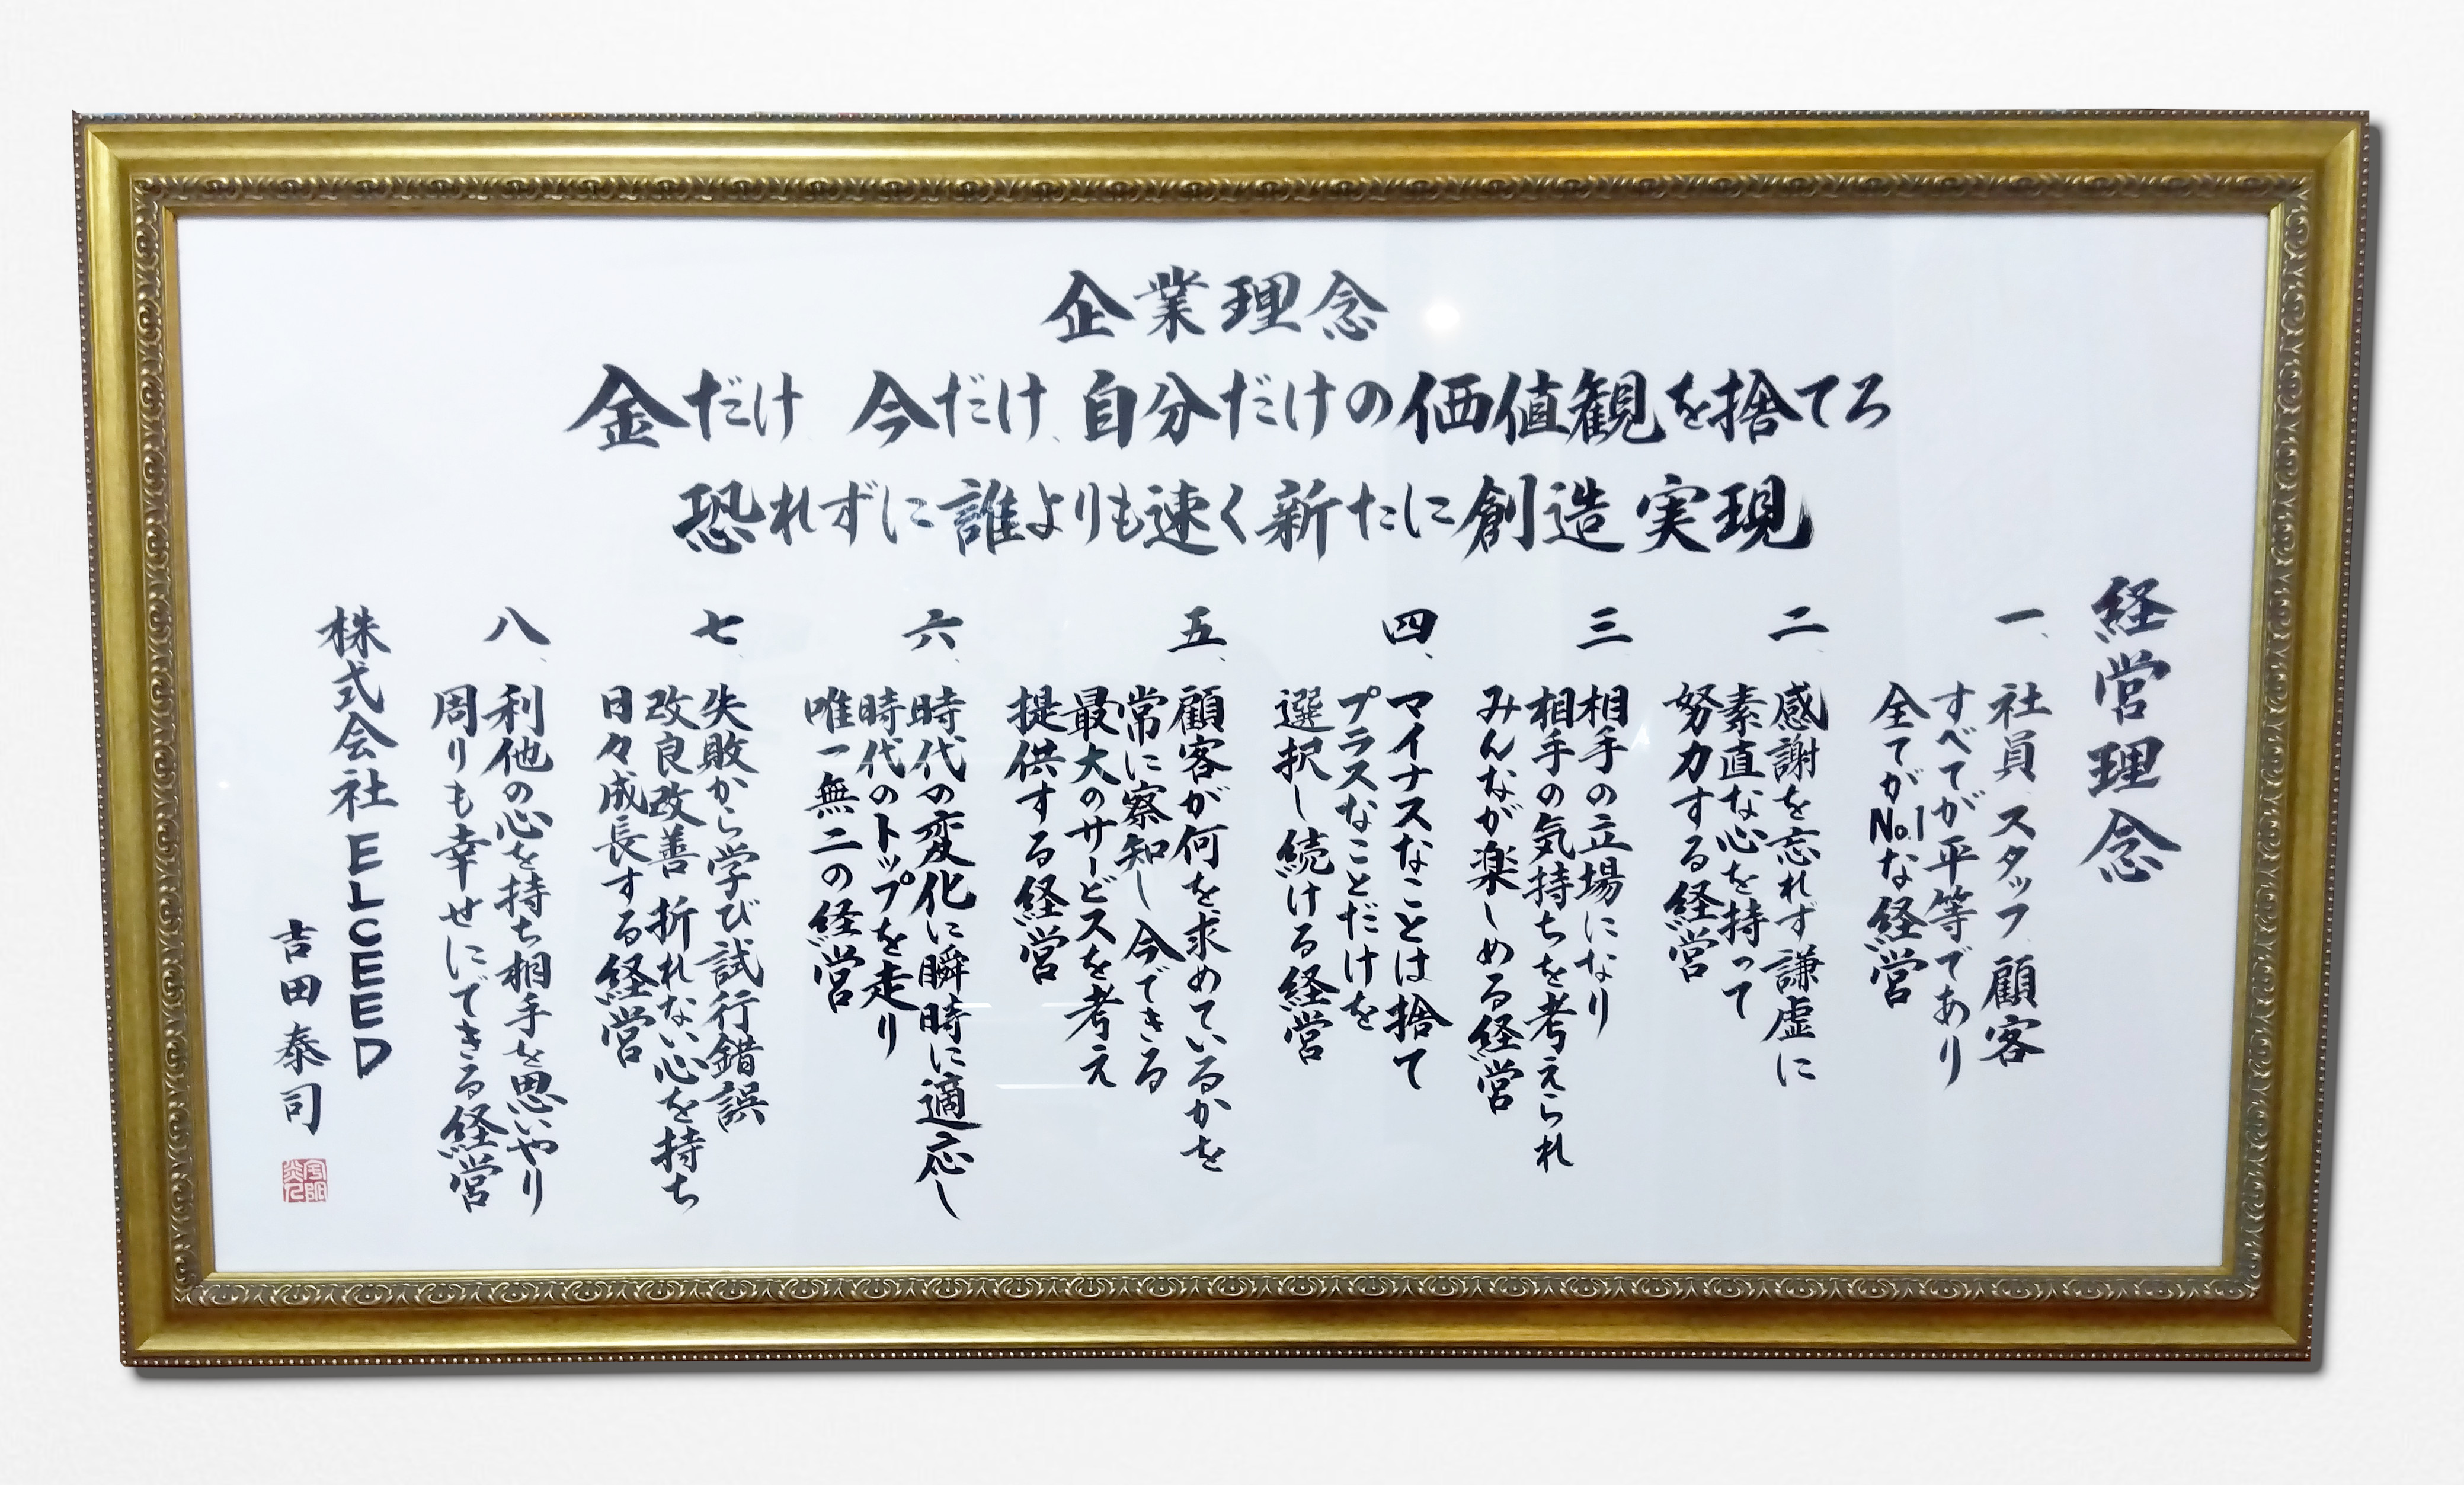 企業理念
金だけ 今だけ、自分だけの価値観を捨てろ
恐れずに誰よりも速く新たに創造実現
経営理念
一、社員、スタッフ、顧客
すべてが平等であり
全てがNo.1な経営
二、感謝を忘れず謙虚に
素直な心を持って
努力する経営
三 相手の立場になり
相手の気持ちを考えられ
みんなが楽しめる経営
四、マイナスなことは捨て
プラスなことだけを
選択し続ける経営
五、顧客が何を求めているかを
常に察知し今できる
最大のサービスを考え
提供する経営
六、時代の変化に瞬時に適応し
時代のトップを走り
唯一無二の経営
七、失敗から学び試行錯誤
改良改善 折れない心を持ち
日々成長する経営
八、利他の心を持ち相手を思いやり
周りも幸せにできる経営
株式会社ELCEED
吉田泰司